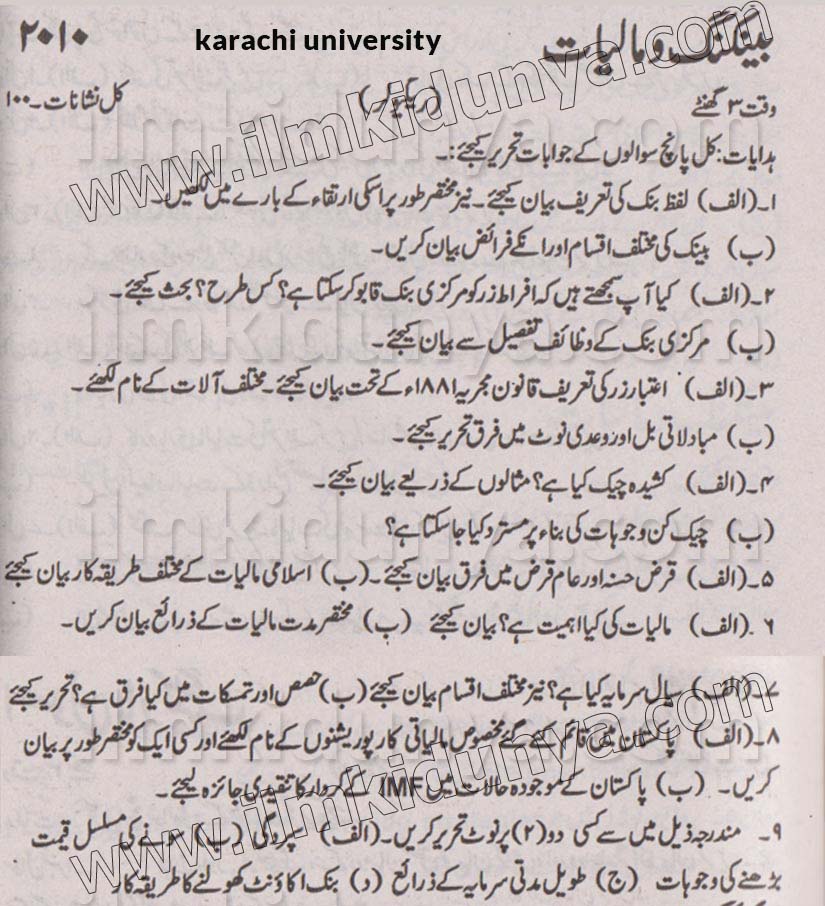 بینکنگ و مالیات karachi university ۲۰۱۰
وقت ۳ گھنٹے (ریگولر) کل نشانات۔۱۰۰
ہدایات: کل پانچ سوالوں کے جوابات تحریر کیجئے:۔
۱۔(الف) لفظ بنک کی تعریف بیان کیجئے۔ نیز مختصر طور پر اسکی ارتقاء کے بارے میں لکھیں۔
(ب) بینک کی مختلف اقسام اور انکے فرائض بیان کریں۔
۲۔(الف) کیا آپ سمجھتے ہیں کہ افراط زر کو مرکزی بنک قابو کر سکتا ہے؟ کس طرح؟ بحث کیجئے۔
(ب) مرکزی بنک کے وظائف تفصیل سے بیان کیجئے۔
۳۔(الف) اعتبار زر کی تعریف قانون مجریہ ۱۸۸۱ء کے تحت بیان کیجئے۔ مختلف آلات کے نام لکھئے۔
(ب) مبادلاتی بل اور وعدی نوٹ میں فرق تحریر کیجئے۔
۴۔(الف) کشیدہ چیک کیا ہے؟ مثالوں کے ذریعے بیان کیجئے۔
(ب) چیک کن وجوہات کی بناء پر مسترد کیا جا سکتا ہے؟
۵۔(الف) قرض حسنہ اور عام قرض میں فرق بیان کیجئے۔(ب) اسلامی مالیات کے مختلف طریقہ کار بیان کیجئے
۶۔(الف) مالیات کی کیا اہمیت ہے؟ بیان کیجئے (ب) مختصر مدت مالیات کے ذرائع بیان کریں۔
۷۔(الف) سیال سرمایہ کیا ہے؟ نیز مختلف اقسام بیان کیجئے (ب) حصص اور تمسکات میں کیا فرق ہے؟ تحریر کیجئے
۸۔(الف) پاکستان میں قائم کئے گئے مخصوص مالیاتی کارپوریشنوں کے نام لکھئے اور کسی ایک کو مختصر طور پر بیان
کریں۔ (ب) پاکستان کے موجودہ حالات میں IMF کے کردار کا تنقیدی جائزہ لیجئے۔
۹۔ مندرجہ ذیل میں سے کسی دو (۲) پر نوٹ تحریر کریں۔(الف) سپردگی (ب) سونے کی مسلسل قیمت
بڑھنے کی وجوہات (ج) طویل مدتی سرمایہ کے ذرائع (د) بنک اکاؤنٹ کھولنے کا طریقہ کار
www.ilmkidunya.com
www.ilmkidunya.com
ilmkidunya.com
ilmkidunya.com
ilmkidunya.com
ilmkidunya.com